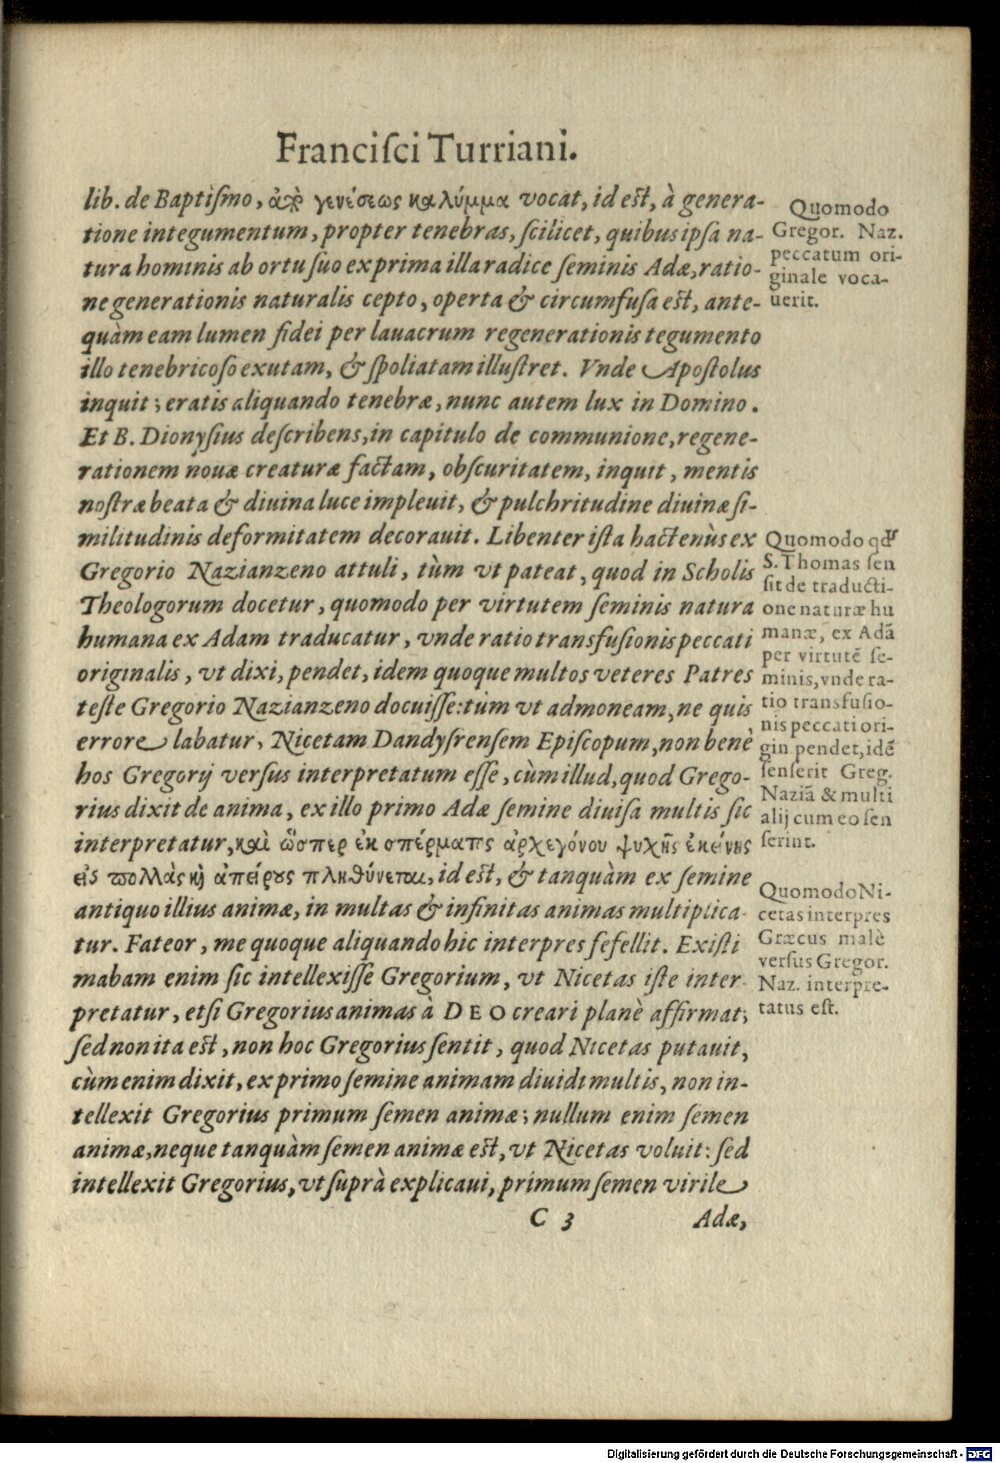 Franciſci Turriani.
lib. de Baptiſmo, ἀπὸ γενέσεως καλύμμα vocat, id eſt, à genera-
tione integumentum, propter tenebras, ſcilicet, quibus ipſa na-
tura hominis ab ortu ſuo ex prima illa radice ſeminis Adæ, ratio-
ne generationis naturalis cepto, operta & circumfuſa eſt, ante-
quàm eam lumen fidei per lauacrum regenerationis tegumento
illo tenebricoſo exutam, & ſpoliatam illuſtret. Vnde Apoſtolus
inquit; eratis aliquando tenebræ, nunc autem lux in Domino.
Et B. Dionyſius deſcribens, in capitulo de communione, regene-
rationem nouæ creaturæ factam, obſcuritatem, inquit, mentis
noſtræ beata & diuina luce impleuit, & pulchritudine diuinæ ſi-
militudinis deformitatem decorauit. Libenter iſta hactenùs ex
Gregorio Nazianzeno attuli, tùm vt pateat, quod in Scholis
Theologorum docetur, quomodo per virtutem ſeminis natura
humana ex Adam traducatur, vnde ratio transfuſionis peccati
originalis, vt dixi, pendet, idem quoque multos veteres Patres
teſte Gregorio Nazianzeno docuiſſe: tùm vt admoneam, ne quis
errore labatur, Nicetam Dandyſrenſem Epiſcopum, non benè
hos Gregorij verſus interpretatum eſſe, cùm illud, quod Grego-
rius dixit de anima, ex illo primo Adæ ſemine diuiſa multis ſic
interpretatur, καὶ ὥσπερ ἐκ σπέρματος ἀρχεγόνου ψυχῆς ἐκείνης
εἰς πολλὰς κὶ ἀπείρους πληθύνεται, id eſt, & tanquàm ex ſemine
antiquo illius animæ, in multas & infinitas animas multiplica-
tur. Fateor, me quoque aliquando hic interpres fefellit. Exiſti
mabam enim ſic intellexiſſe Gregorium, vt Nicetas iſte inter-
pretatur, etſi Gregorius animas à DEO creari planè affirmat;
ſed non ita eſt, non hoc Gregorius ſentit, quod Nicetas putauit,
cùm enim dixit, ex primo ſemine animam diuidi multis, non in-
tellexit Gregorius primum ſemen animæ; nullum enim ſemen
animæ, neque tanquàm ſemen animæ eſt, vt Nicetas voluit: ſed
intellexit Gregorius, vt ſuprà explicaui, primum ſemen virile
C 3 Adæ,
Quomodo
Gregor. Naz.
peccatum ori-
ginale voca-
uerit.
Quomodo qd
S. Thomas ſen
ſit de traducti-
one naturæ hu
manæ, ex Adã
per virtutẽ ſe-
minis, vnde ra-
tio transfuſio-
nis peccati ori-
gin pendet, idẽ
ſenſerit Greg.
Naziã & multi
alij cum eo ſen
ſerint.
Quomodo Ni-
cetas interpres
Græcus malè
verſus Gregor.
Naz. interpre-
tatus eſt.
Digitalisierung gefördert durch die Deutsche Forschungsgemeinschaft - DFG